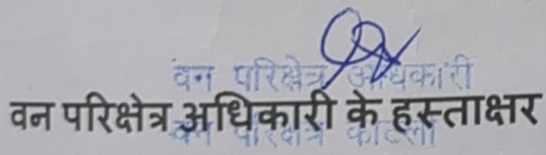 वन परिक्षेत्र अधिकारी
वन परिक्षेत्र अधिकारी के हस्ताक्षर
वन परिक्षेत्र कोटला